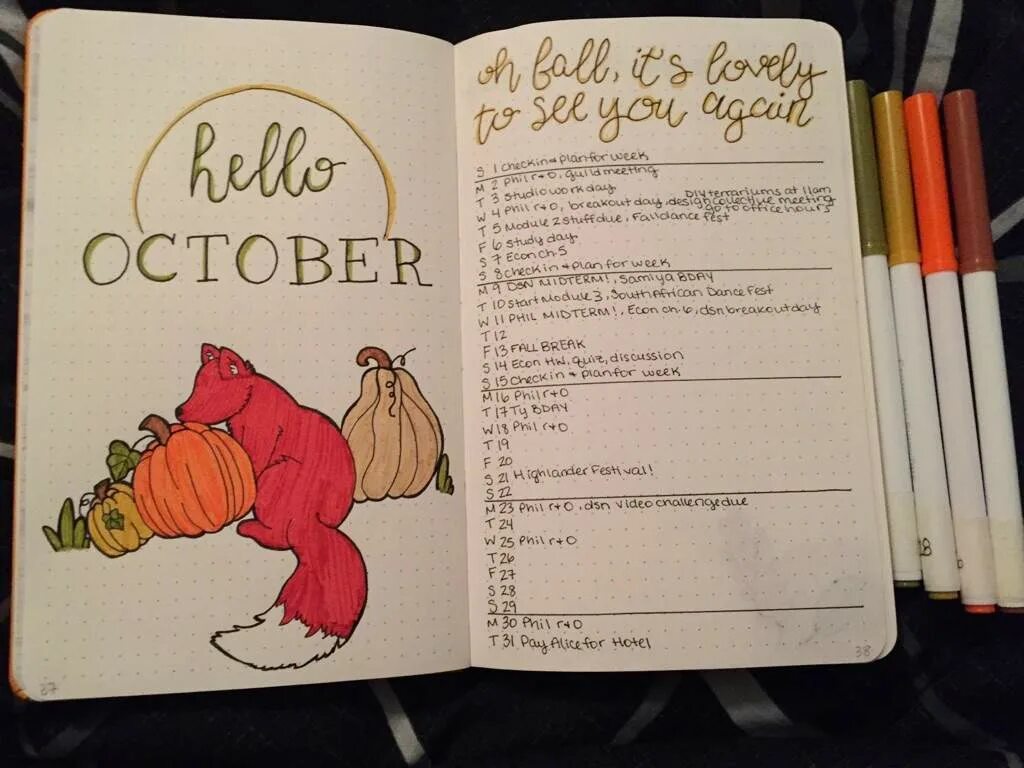 hello
OCTOBER
37
oh fall, it's lovely
to see you again
S 1 checkin + plan for week
M 2 Phil r+0, guild meeting
T 3 Studio work day
DIY terrariums at 11am
W 4 Phil r+0, breakout day, design collective meeting
go to office hours
T 5 Module 2 stuff due, Fall dance fest
F 6 study day
S 7 Econ ch.5
S 8 check in + plan for week
M 9 DSN MIDTERM!, Samiya BDAY
T 10 Start Module 3, South African Dance Fest
W 11 PHIL MIDTERM!, Econ ch.6, dsn breakout day
T 12
F 13 FALL BREAK
S 14 Econ HW, quiz, discussion
S 15 Check in + plan for week
M 16 Phil r+0
T 17 Ty BDAY
W 18 Phil r+0
T 19
F 20
S 21 Highlander Festival!
S 22
M 23 Phil r+0, dsn video challenge due
T 24
W 25 Phil r+0
T 26
F 27
S 28
S 29
M 30 Phil r+0
T 31 Pay Alice for Hotel
38